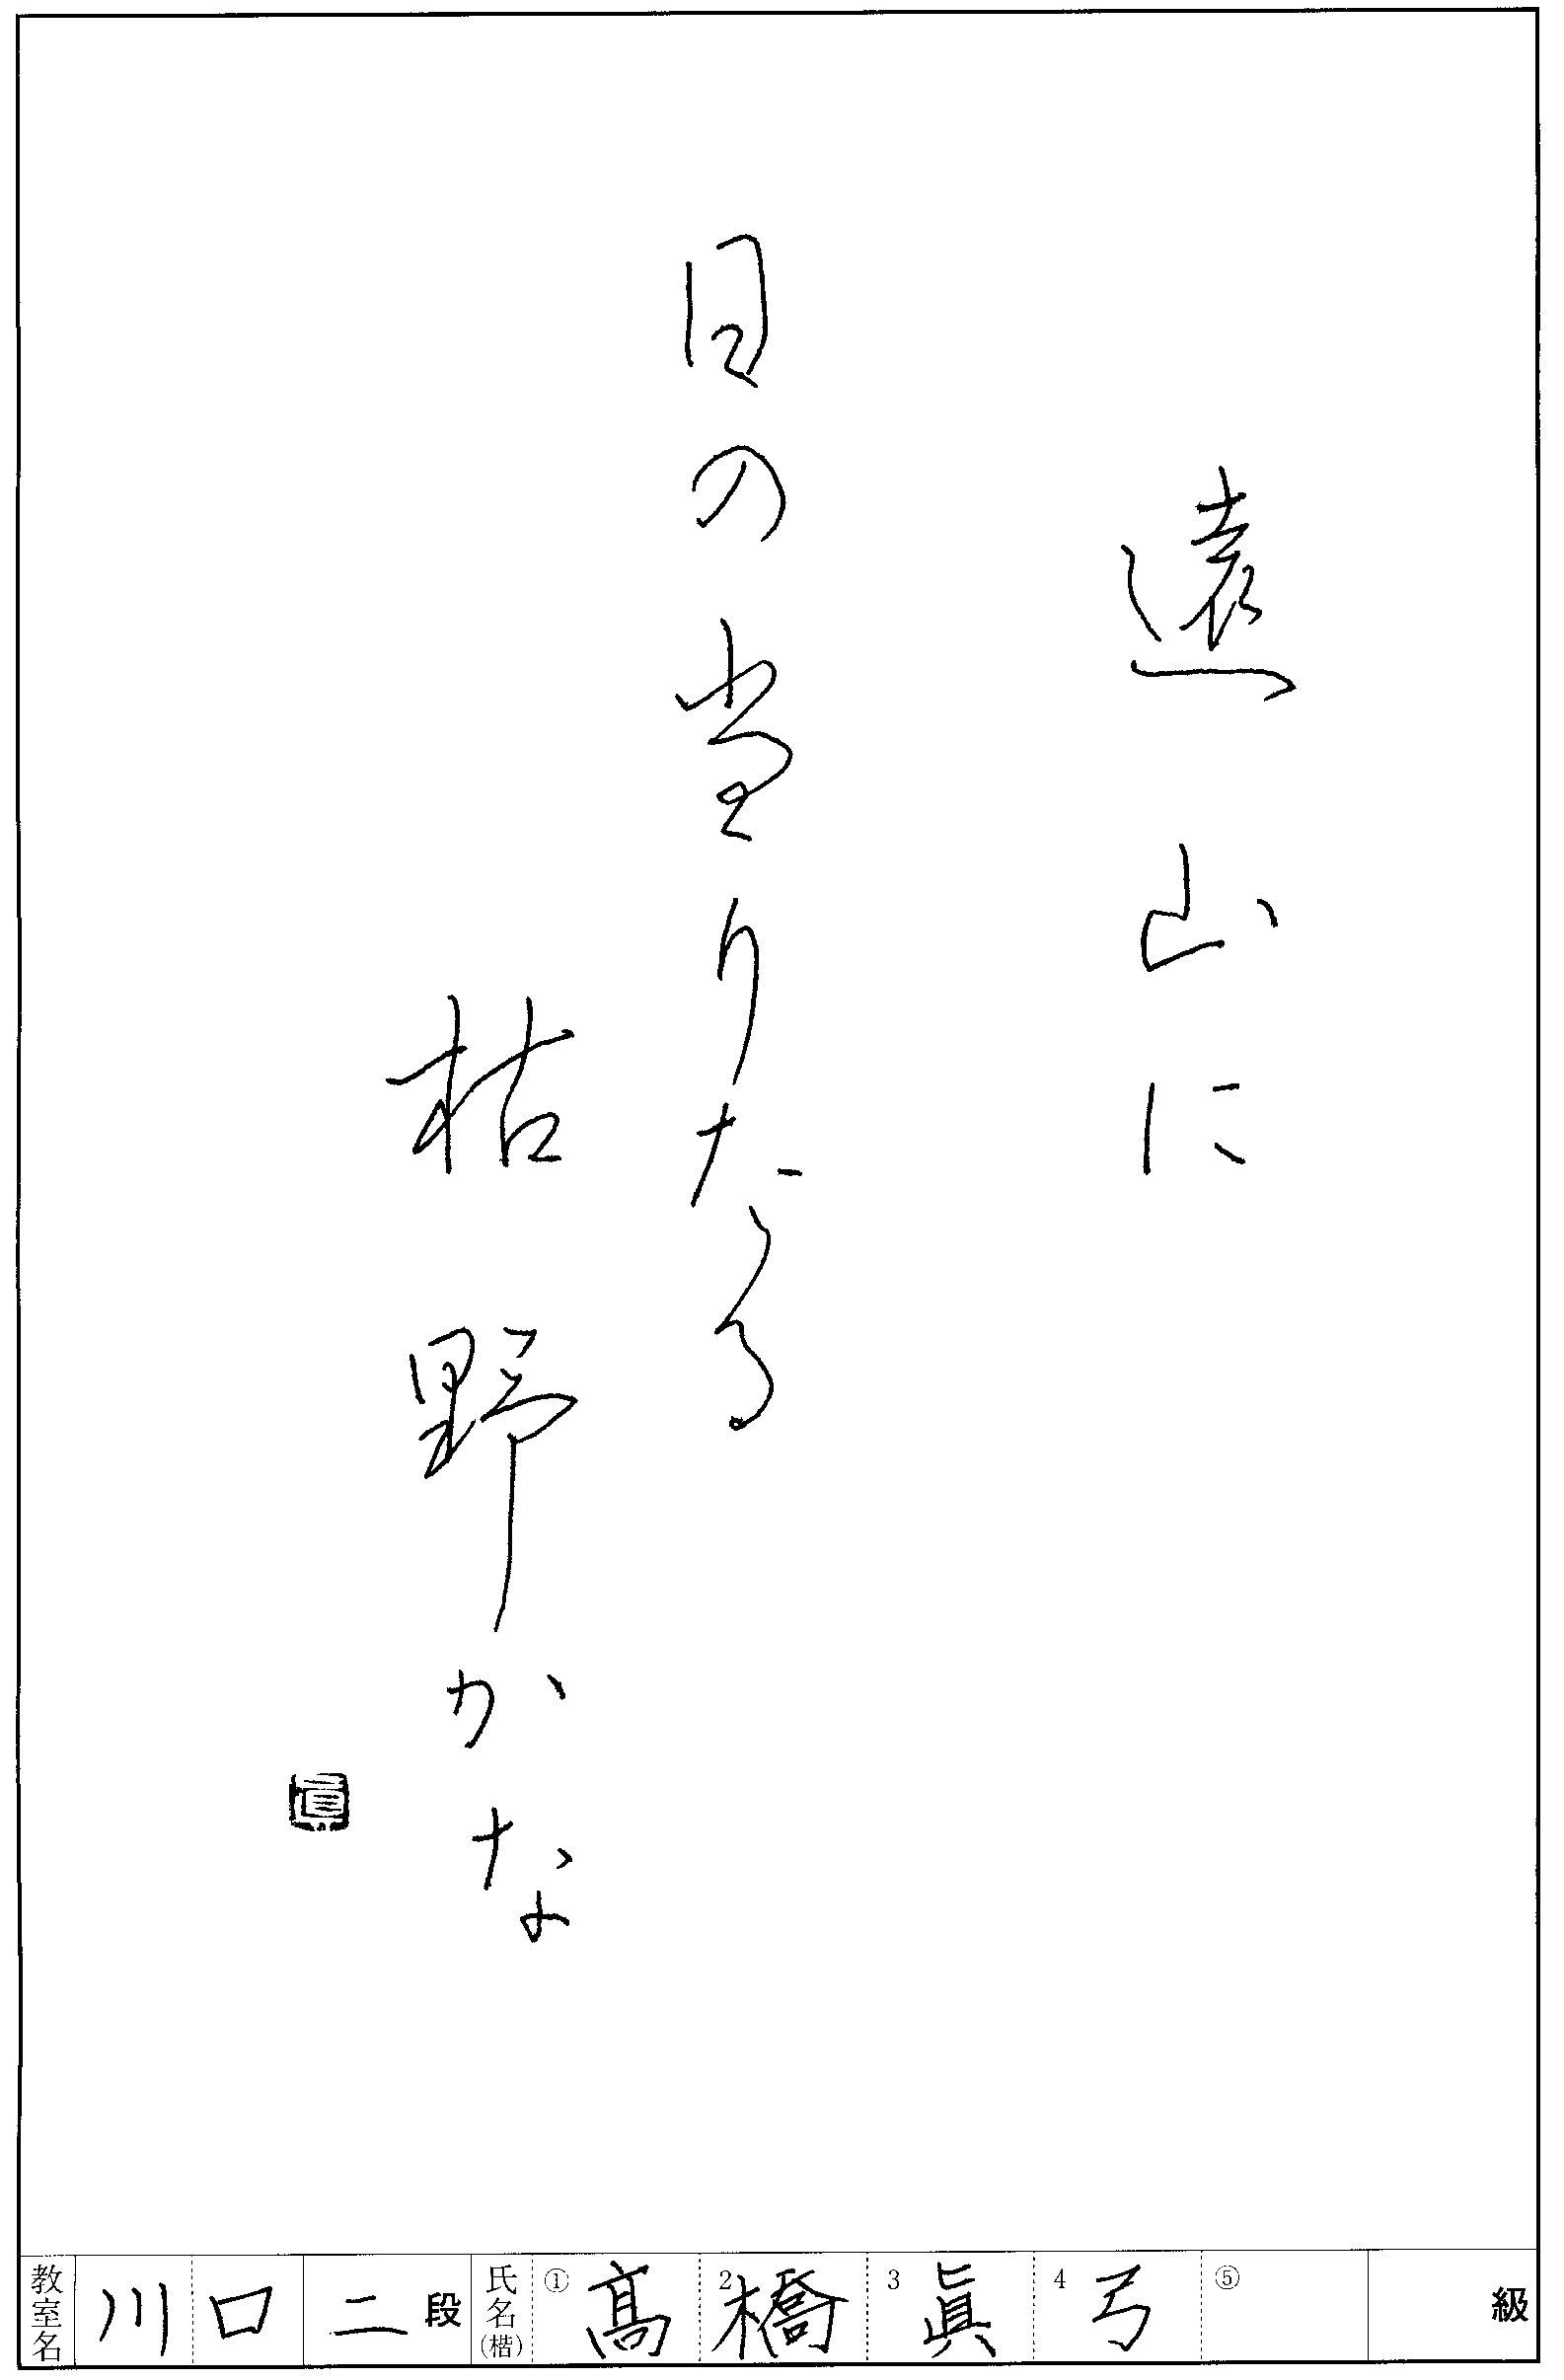 遠山に
日の当りたる
枯野かな
眞
教室名 川口 二段 氏名(楷) ①髙 2橋 3眞 4弓 ⑤ 級